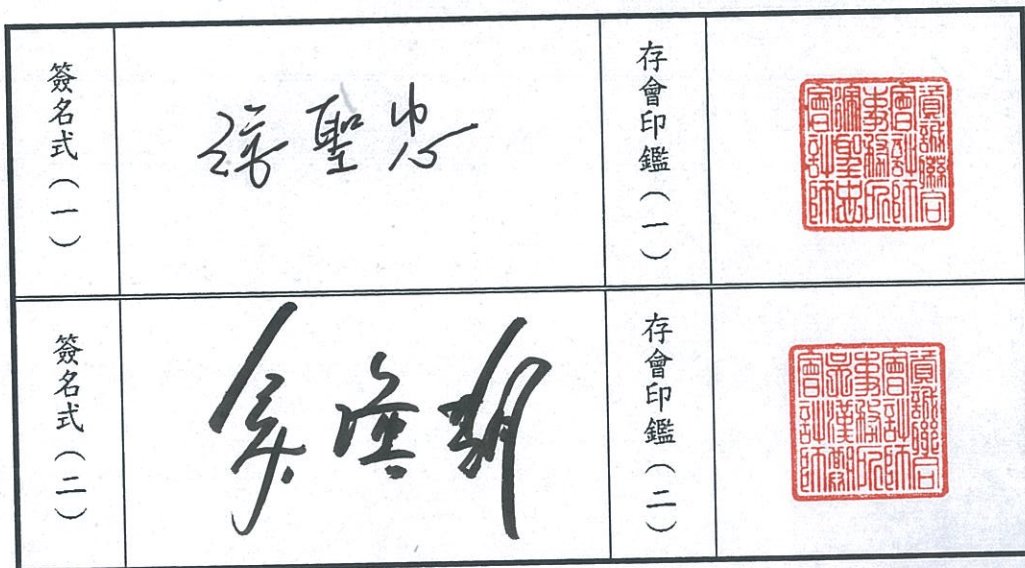 簽名式(一)
聖忠
存會印鑑(一)
資誠聯合
會計師
事務所
聖忠
會計師
簽名式(二)
吳漢期
存會印鑑(二)
資誠聯合
會計師
事務所
吳漢期
會計師